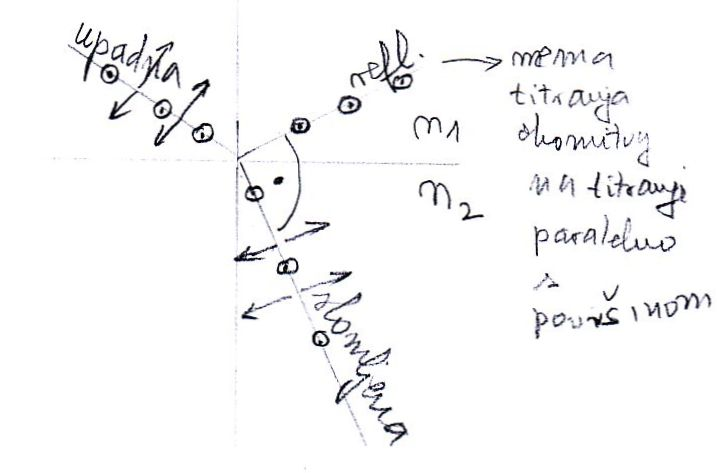 upadna
refl.
nema
titranja
n1
okomitog
n2
na titranje
paralelno
s
površinom
slomljena